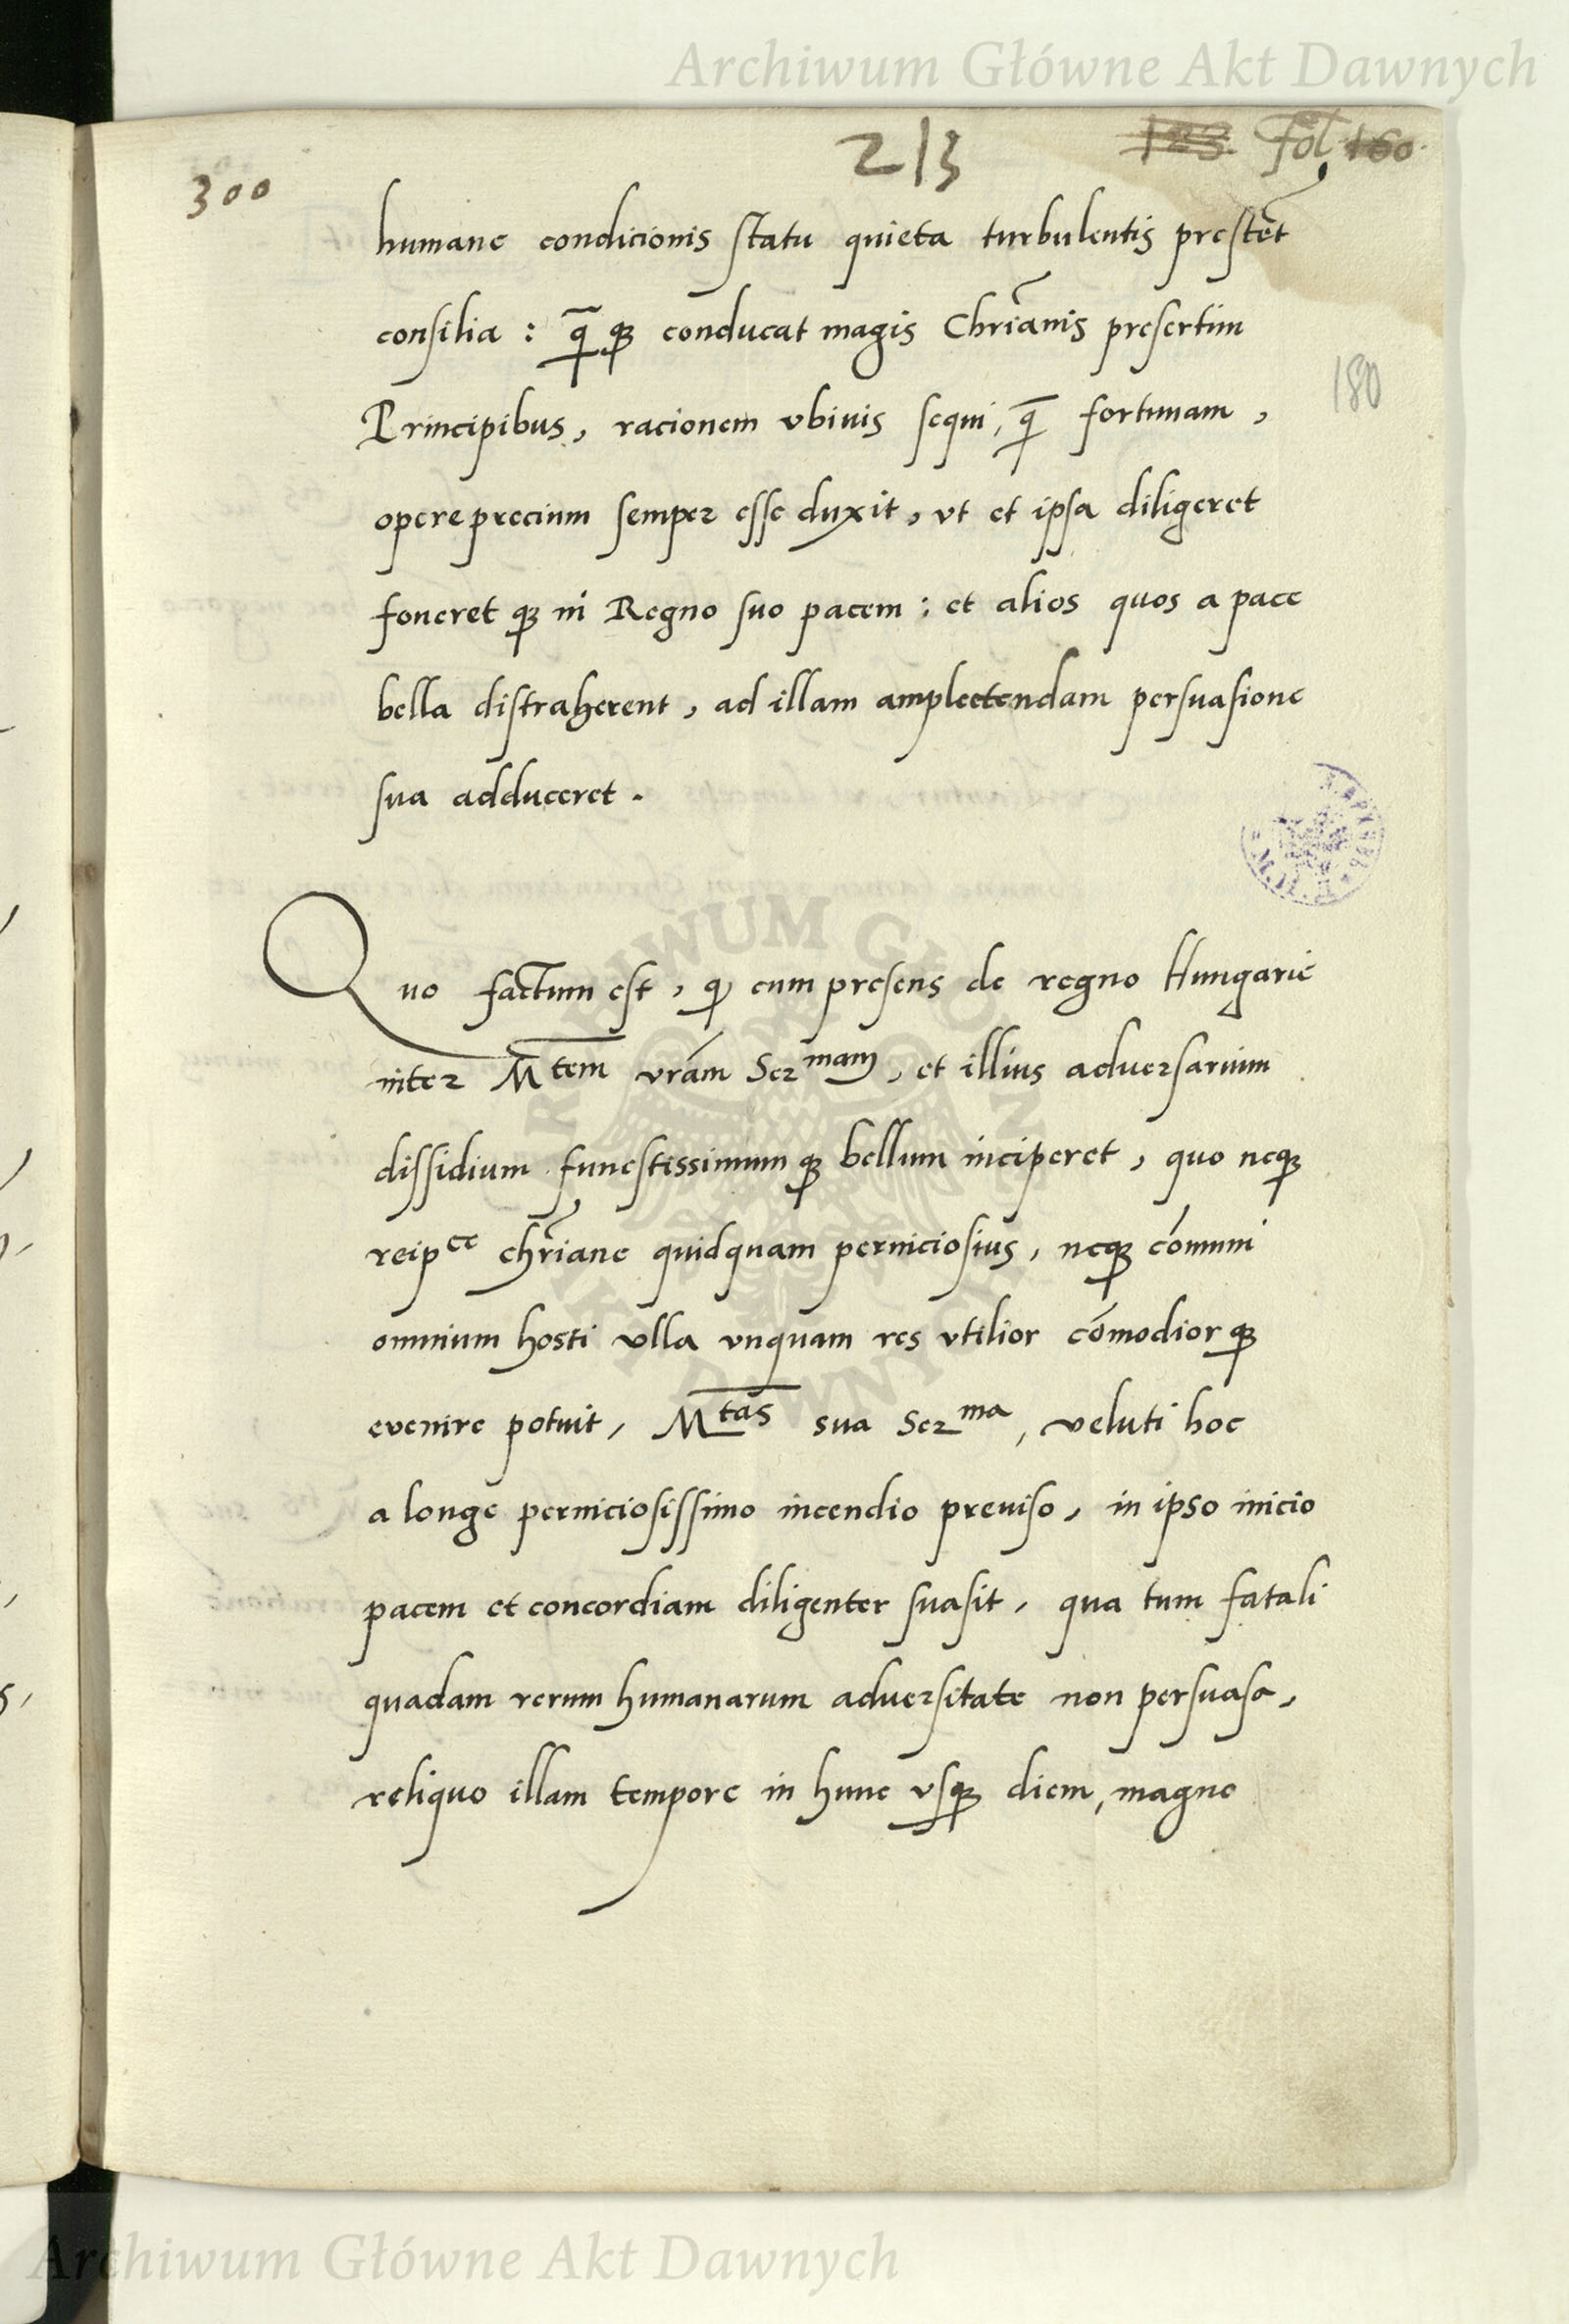 Archiwum Główne Akt Dawnych
213 fol. 160
300
humane condicionis statu quieta turbulentis prestēt
consilia : q̄ qȝ conducat magis Chr̄ianis presertim
180
Principibus, racionem vbiuis sequi, q̄ fortunam,
opereprecium semper esse duxit, vt et ipsa diligeret
foueret qȝ in Regno suo pacem : et alios quos a pace
bella distraherent, ad illam amplectendam persuasione
sua adduceret.
Quo factum est, ꝙ cum presens de regno Hungarie
inter M^tem vrām Ser^mam, et illius adversarium
dissidium funestissimum qȝ bellum inciperet, quo neqȝ
reip^ce chr̄iane quidquam perniciosius, neqȝ cōmuni
omnium hosti vlla vnquam res vtilior cōmodior qȝ
evenire potuit, M^tas sua Ser^ma, veluti hoc
a longe perniciosissimo incendio preuiso, in ipso inicio
pacem et concordiam diligenter suasit, qua tum fatali
quadam rerum humanarum adversitate non persuasa,
reliquo illam tempore in hunc vsqȝ diem, magno
ARCHIWUM GŁÓWNE AKT DAWNYCH
Archiwum Główne Akt Dawnych